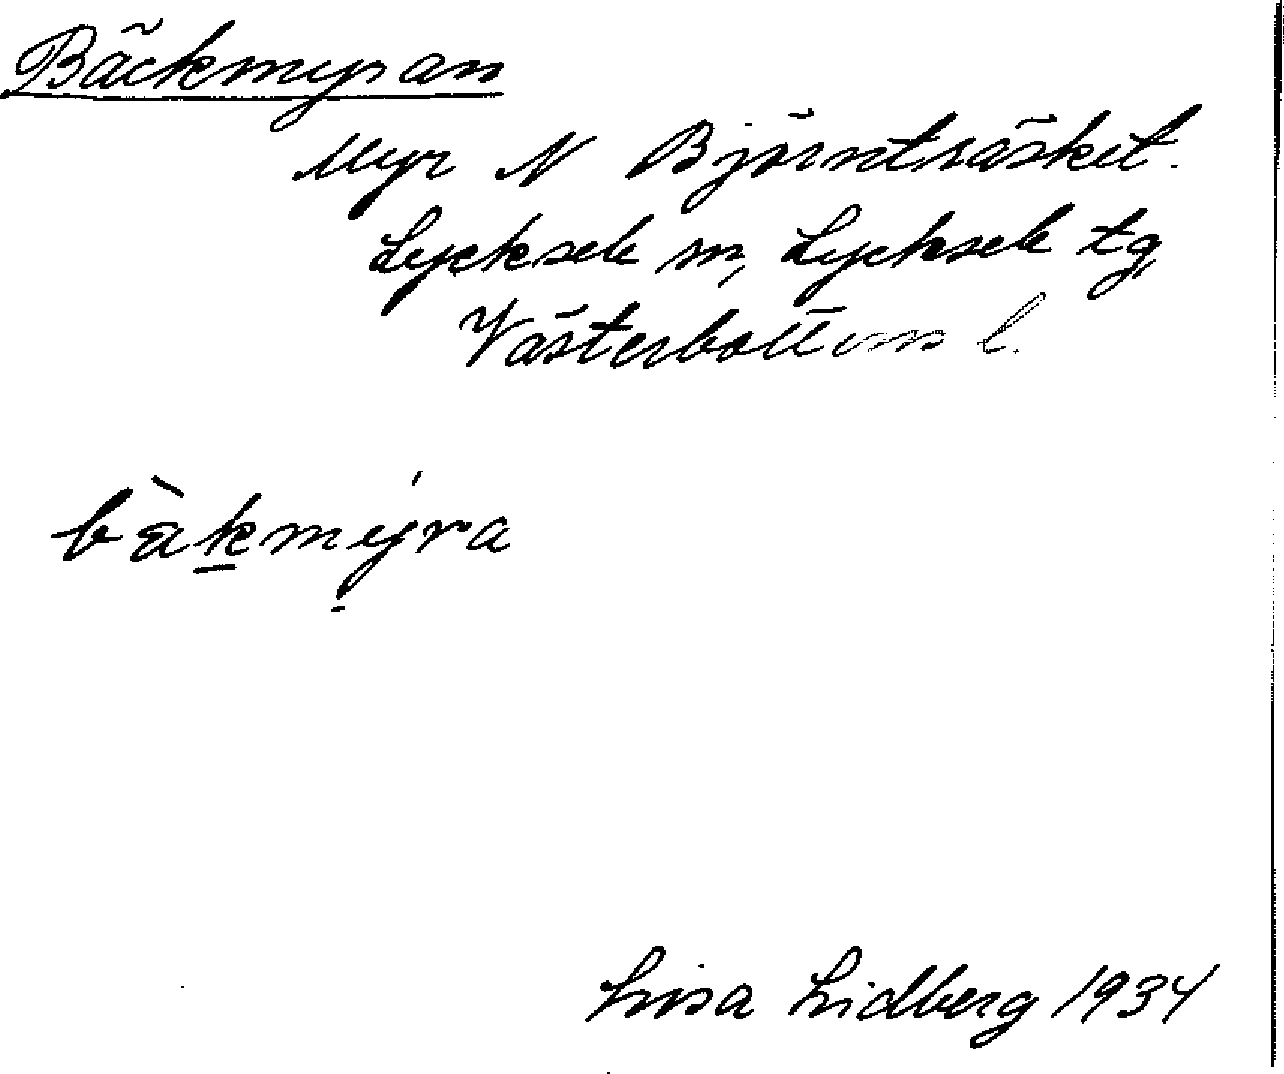 Bäckmyran
Myr N Björnträsket.
Lycksele sn, Lycksele tg,
Västerbottens l.
bàk̲mýra
Lisa Lidberg 1934